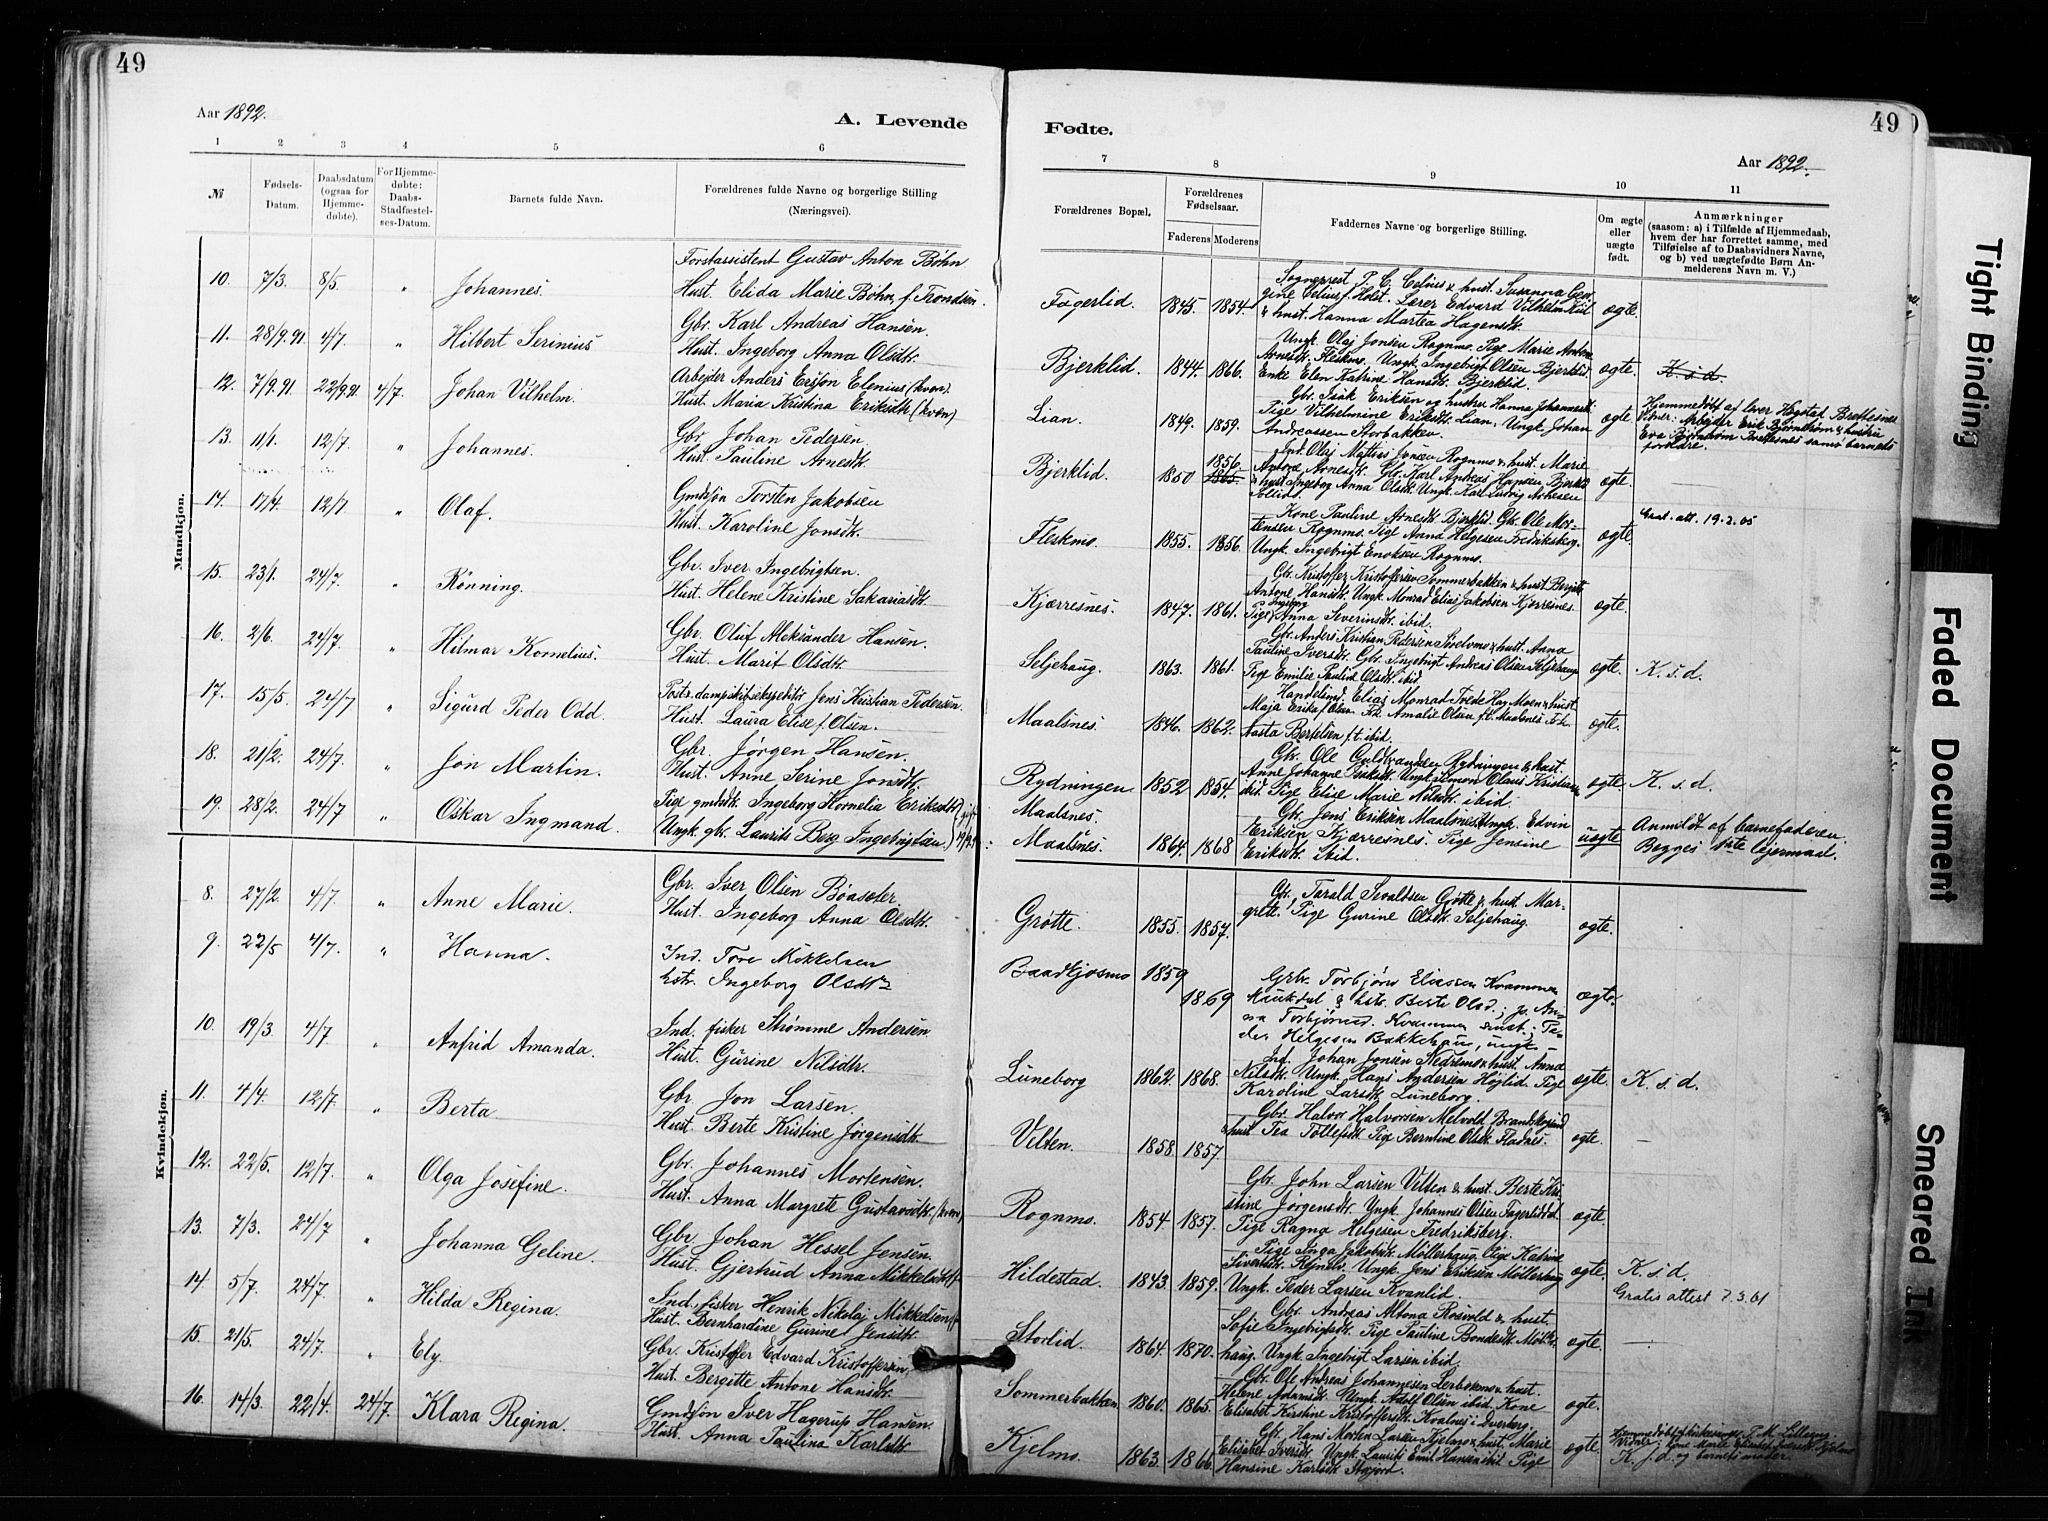 49
Aar 1892.
A. Levende
1 2 3 4 5 6
№
Fødsels-
Datum.
Daabsdatum
(ogsaa for
Hjemme-
døbte).
For Hjemme-
døbte:
Daabs-
Stadfæstel-
ses-Datum.
Barnets fulde Navn.
Forældrenes fulde Navne og borgerlige Stilling
(Næringsvei).
Mandkjøn.
Forstassistent Gustav Anton Bøhn
10. 7/3. 8/5. " Johannes. Hust. Elida Marie Bøhn, f. Trondsen.
Gbr. Karl Andreas Hansen.
11. 28/9.91. 4/7. " Hilbert Serinius Hust. Ingeborg Anna Olsdtr.
Arbejder Anders Ersson Elenius (kvæn).
12. 7/9.91. 22/9.91 4/7. Johan Vilhelm. Hust. Maria Kristina Eriksdtr (kvæn)
Gbr. Johan Pedersen.
13. 11/1. 12/7. " Johannes. Hust. Pauline Arnesdtr.
Gmdssøn Torsten Jakobsen
14. 17/4. 12/7 " Olaf. Hust. Karoline Jonsdtr.
Gbr. Iver Ingebrigtsen.
15. 23/1. 24/7. " Rønning. Hust. Helene Kristine Sakariasdtr.
Gbr. Oluf Aleksander Hansen.
16. 2/6. 24/7. " Hilmar Kornelius. Hust. Marit Olsdtr.
Post & dampskibsekspeditør Jens Kristian Pedersen.
17. 15/5. 24/7 " Sigurd Peder Odd. Hust. Laura Elise f. Olsen.
Gbr. Jørgen Hansen.
18. 21/2. 24/7. " Jon Martin. Hust. Anne Serine Jonsdtr.
19. 28/2. 24/7 " Oskar Ingmand. Pige gmdsdtr. Ingeborg Kornelia Eriksdtr
Ungk. gbr. Laurits Berg Ingebrigtsen.
Kvindekjøn.
Gbr. Iver Olsen Bøasæter.
8. 27/2. 4/7. " Anne Marie. Hust. Ingeborg Anna Olsdtr.
9. 22/5 4/7. " Hanna. Ind. Tore Mikkelsen
hstr. Ingeborg Olsdtr
10. 19/3. 4/7. " Anfrid Amanda. Ind. fisker Strømme Andersen
Hust. Gurine Nilsdtr.
11. 4/4. 12/7. " Berta Gbr. Jon Larsen.
Hust. Berte Kristine Jørgensdtr
12. 22/5. 12/7. " Olga Josefine. Gbr. Johannes Mortensen.
Hust. Anna Margrete Gustavsdtr (kvæn)
13. 7/3. 24/7 " Johanna Geline. Gbr. Johan Hessel Jensen.
Hust. Gjertrud Anna Mikkelsdtr
14. 5/7. 24/7. " Hilda Regina. Ind. fisker Henrik Nikolaj Mikkelsen
Hust. Bernhardine Gurine Jensdtr.
15. 21/5. 24/7. " Ely. Gbr. Kristoffer Edvard Kristoffersen.
Hust. Bergitte Antone Hansdtr.
16. 14/3. 22/4. 24/7. Klara Regina. Gmdssøn Iver Hagerup Hansen.
Hust. Anna Paulina Karlsdtr.
Fødte.
49
Aar 1892.
7 8 9 10 11
Forældrenes Bopæl.
Forældrenes
Fødselsaar.
Faderens Moderens
Faddernes Navne og borgerlige Stilling.
Om ægte
eller
uægte
født.
Anmærkninger
(saasom: a) i Tilfælde af Hjemmedaab,
hvem der har forrettet samme, med
Tilføielse af to Daabsvidners Navne,
og b) ved uægtefødte Børn An-
melderens Navn m. V.)
Sognepræst J. C. Celius & hust. Susanna Geor-
gine Celius f. Holst. Lærer Edvard Vilhelm Kiil
Fagerlid. 1845. 1854. & hust. Hanna Martea Hagensdtr. ægte.
Ungk. Olaj Jonsen Rognmo. Pige Marie Anton
Arnesdtr. Fleskmo. Ungk. Ingebrigt Olsen Bjerklid
Bjerklid. 1844. 1866. Enke Elen Katrine Hansdtr. Bjerklid. ægte. K. s. d.
Gbr. Isak Eriksen og hustru Hanna Johannesdtr.
Lian. 1849. 1859. Pige Vilhelmine Eriksdtr. Lian. Ungk. Johan
Andreassen Storbakken. ægte Hjemmedøbt af lærer Høgstad Brettesnes
Vidner: Arbejder Erik Bjørnstrøm & hustru
Eva Bjørnstrøm Brettesnes samt barnets
forældre.
Ind. Olaj Mattias Jonsen Rognmo & hust. Marie
Bjerklid. 1850 1856. 1865. Antone Arnesdtr. Gbr. Karl Andreas Hansen Bjerklid
& hust. Ingeborg Anna Olsdtr. Ungk. Karl Ludvig Arnesen
Sollid. ægte.
Kone Pauline Arnesdtr. Bjerklid. Gbr. Ole Mor-
Fleskmo. 1855. 1856. tensen Rognmo. Pige Anna Helgesen Fredriksberg.
Ungk. Ingebrigt Enoksen Rognmo. ægte. Grat. att. 19.2.05
Gbr. Kristoffer Kristoffersen Sommerbakken & hust. Bergitte
Kjærresnes. 1847. 1861. Antone Hansdtr. Ungk. Monrad Elias Jakobsen Kjærresnes.
Pige Ingeborg Anna Severinsdtr. ibid. ægte.
Gbr. Anders Kristian Pedersen & hust. Anna
Seljehaug. 1863. 1861. Pauline Iversdtr. Gbr. Ingebrigt Andreas Olsen Seljehaug
Pige Emilie Pauline Olsdtr. ibid ægte. K. s. d.
Handelsmd. Elias Monrad Moen & hust.
Maalsnes. 1846. 1862. Maja f. Olsen. Frk. Amalie Olsen f.t. Maalsnes. Frk.
Aasta Bertelsen f.t. ibid. ægte.
Gbr. Ole Guldbrandsen Rydningen & hust.
Rydningen 1852 1854. Anne Johanne Ungk. Simon Olaus Kristiansen
ibid. Pige Elise Marie Nilsdtr. ibid. ægte. K. s. d.
Maalsnes. Gbr. Jens Eriksen Maalsnes. Ungk. Edvin
Maalsnes. 1864. 1868 Eriksen Kjærresnes. Pige Jensine
Eriksdtr. ibid. uægte Anmeldt af barnefaderen.
Begges 1ste lejermaal.
Gbr. Tarald Sevaldsen Grøtte & hust. Mar-
Grøtte. 1855. 1857. grete. Pige Gurine Olsdtr. Seljehaug. ægte.
Baadkjosmo 1859 1869 Grbr. Torbjørn Eliassen Kvammen
& hstr. Berit Olsd.; p. An-
na Torbjørnsd. Kvammen; Pe-
der Helgesen Bakkehaug, ungk. ægte.
Ind. Johan Jonsen Nedremo & hust. Anna
Luneborg 1862. 1868. Nilsdtr. Ungk. Hans Andersen Højlid. Pige
Karoline Larsdtr. Luneborg. ægte. K. s. d.
Gbr. Halvor Halvorsen Melvold Brandskognd
Velten. 1858. 1857. & hust Tea Tollefsdtr. Pige Berntine Olsdtr. Fladnes. ægte. —
Gbr. John Larsen Velten & hust. Berte Kri-
Rognmo. 1854. 1857. stine Jørgensdtr. Ungk. Johannes Olsen Fagerliddal
Pige Ragna Helgesen Fredriksberg. ægte
Pige Inga Jakobsdtr. Møllerhaug. Pige Katrine
Hildestad. 1843. 1859. Sivertsdtr. Rejnels. Ungk. Jens Eriksen Møllerhaug
Ungk. Peder Larsen Kvanlid. ægte. K. s. d.
Gratis attest 7.3.61
Gbr. Andreas Altona Rosvold & hust.
Storlid. 1864. 1870. Sofie Ingebrigtsdtr. Pige Pauline Bondesdtr. Møller-
haug. Ungk. Ingebrigt Larsen ibid. ægte. —
Gbr. Ole Andreas Johannesen Lerbakmo & hust.
Sommerbakken. 1860. 1865. Helene Adamsdtr. Ungk. Adolf Olsen ibid. Kone
Elisabet Kirstine Kristoffersdtr. Kvalnes i Dverberg. ægte.
Gbr. Hans Morten Larsen Kjelmo & hust. Marie
Kjelmo. 1863. 1866. Elisabet Iversdtr. Ungk. Laurits Emil Hansen ibid. Pige
Hansine Karlsdtr. Storjord. ægte Hjemmedøbt af kirkesanger P. M. Lilleeng.
Vidner: kone Marie Elisabet Iversdtr. Kjelmo
K. s. d. og barnets moder.
Tight Binding
Faded Document
Smeared Ink